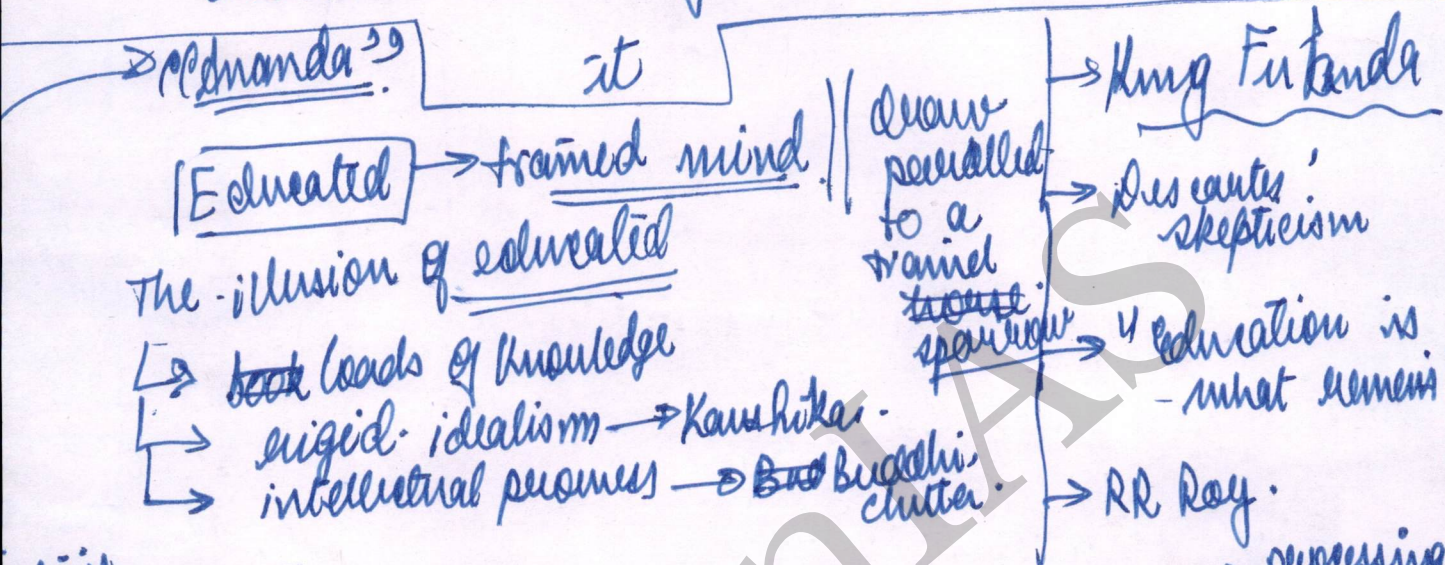 → "Ananda".
it
Educated → trained mind.
The illusion of educated
↳ book loads of knowledge
↳ rigid idealism → Kaushika.
↳ intellectual prowess → Bud Buddhi-
chitta.
draw
parallel
to a
trained
horse
sparrow
→ King
→ Descartes'
skepticism
→ "education is
what remains
→ RR Roy.
nIAS